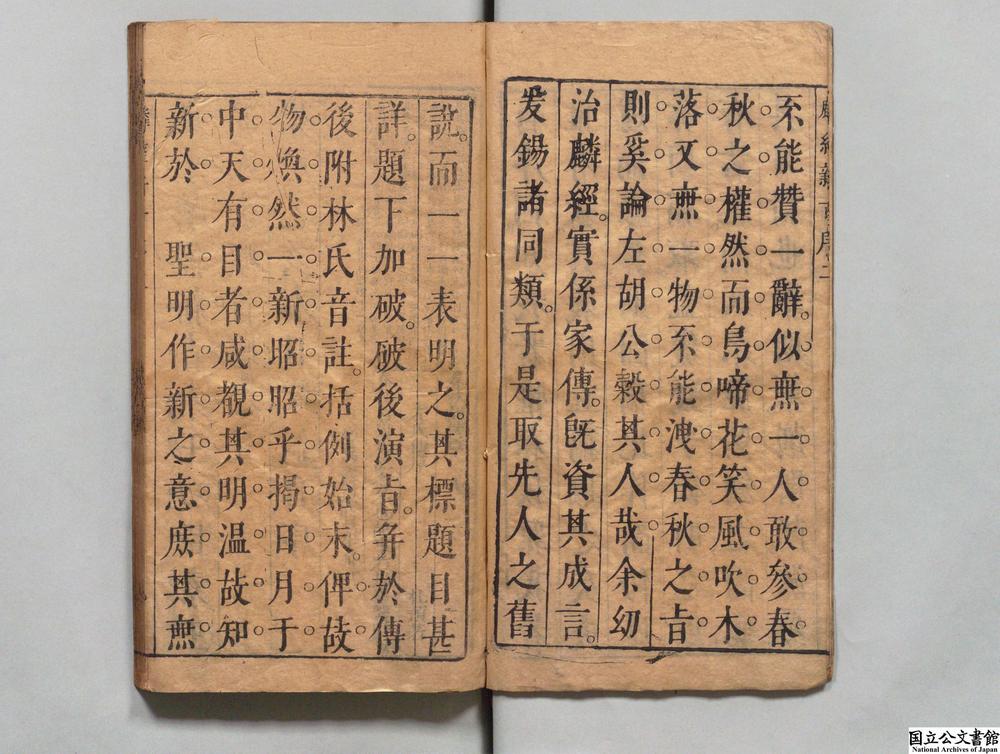 不能贊一辭。似無一人敢參春
秋之權然而鳥啼花笑風吹木
落又無一物不能洩春秋之旨
則奚論左胡公穀其人哉余幼
治麟經。實係家傳。既資其成言。
发鍚諸同類。于是取先人之舊
說。而一一表明之。其標題目甚
詳。題下加破。破後演旨。并於傳
後附林氏音註。括例始末。俾故
物煥然一新昭昭乎揭日月于
中天有目者咸覩其明溫故知
新於 聖明作新之意庶其無
国立公文書館
National Archives of Japan